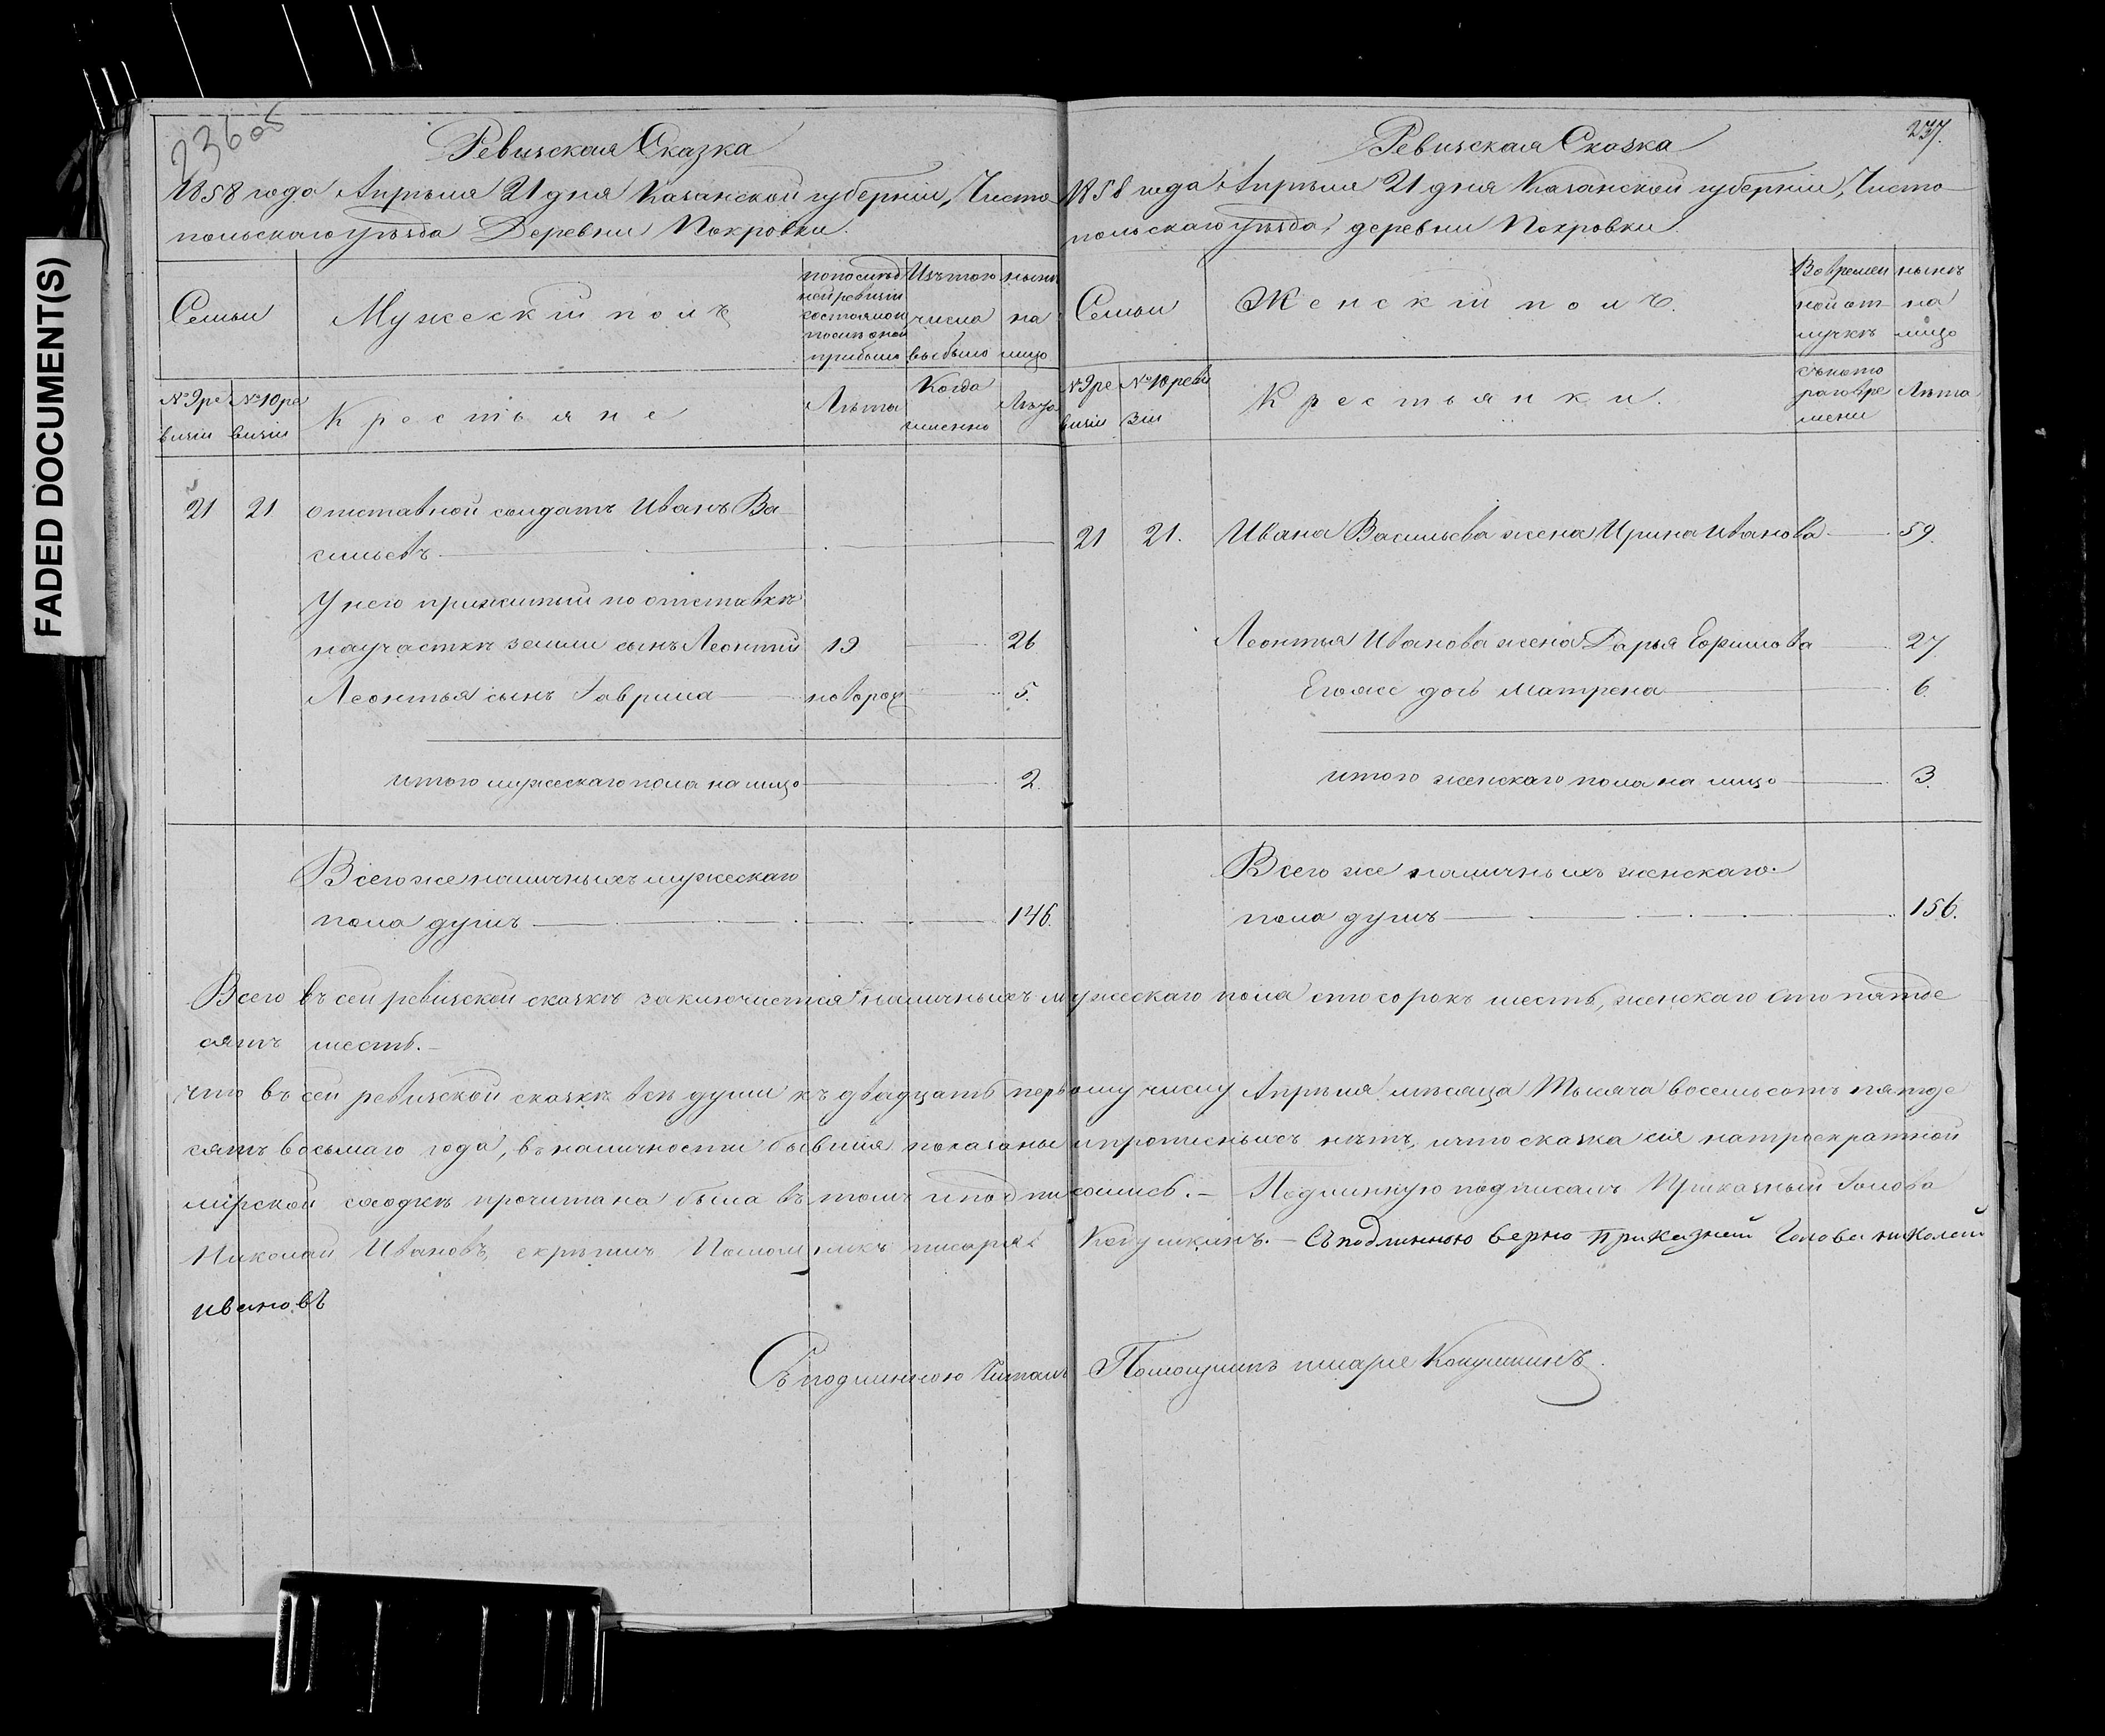 FADED DOCUMENT(S)
236об
Ревизская Сказка
1858 года Апрѣля 21 дня Казанской губерніи, Чисто
польскаго уѣзда Деревни Покровки.
Семьи
Мужескій полъ
по послѣд
ней ревизіи
состояло и
послѣ оной
прибыло
Изъ того
числа
выбыло
нынѣ
на
лицо
№ 9 ре
визіи
№ 10 ре
визіи
Крестьяне
Лѣта
Когда
именно
Лѣта
21 21 отставной солдатъ Иванъ Ва
сильевъ
У него прижитый по отставкѣ
на участкѣ земли сынъ Леонтій 19 26
Леонтья сынъ Гаврила новорож 5.
итого мужескаго пола на лицо 2.
Всего же наличныхъ мужескаго
пола душъ 146.
237.
Ревизская Сказка
1858 года Апрѣля 21 дня Казанской губерніи, Чисто
польскаго уѣзда, деревни Покровки
Семьи
Женскій полъ.
Во времен
ной от
лучкѣ
нынѣ
на
лицо
№ 9 ре
визіи
№ 10 реви
зіи
Крестьянки.
съ кото
раго вре
мени
Лѣта
21 21. Ивана Васильева жена Ирина Иванова 59.
Леонтья Иванова жена Дарья Ефимова 27
Его же дочь Матрена 6.
итого женскаго пола на лицо 3.
Всего же наличныхъ женскаго
пола душъ 156.
Всего въ сей ревизской сказкѣ заключается наличныхъ мужескаго пола сто сорокъ шесть, женскаго сто пятьде
сятъ шесть.
что въ сей ревизской сказкѣ всѣ души къ двадцать первому числу Апрѣля мѣсяца Тысяча восемьсотъ пятьде
сятъ восьмаго года, въ наличности бывшія показаны и прописныхъ нѣтъ, и что сказка сія на троекратной
мірской сходкѣ прочитана была въ томъ и подписались. Подлинную подписалъ Приказный Голова
Николай Ивановъ, скрѣпилъ Помощникъ писаря Кокушкинъ. Съ подлинною верно приказный Голова николай
ивановъ
Съ подлинною Читалъ Помощникъ писаря Кокушкинъ.